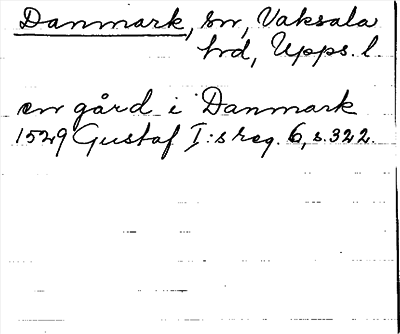 Danmark, sn, Vaksala
hd, Upps. l.
en gård i Danmark
1529 Gustaf I:s reg. 6, s. 322.